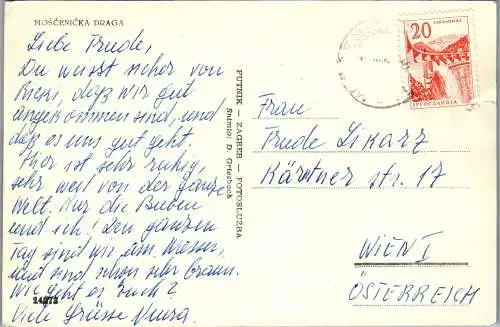 MOŠĆENIČKA DRAGA
Liebe Trude,
Du weisst sicher von
Ricki, daß wir gut
angekommen sind, und
daß es uns gut geht.
Hier ist sehr ruhig,
sehr weit von der ganze
Welt. Nur die Buben
und ich! Den ganzen
Tag sind wir am Wasser,
und sind schon sehr braun.
Wie geht es Euch?
Viele Grüsse Vera.
14272
PUTNIK — ZAGREB — FOTOSLUŽBA
Snimio: D. Griesbach
20
JUGOSLAVIJA
Frau
Trude Sikarz
Kärntner str. 17
WIEN I
ÖSTERREICH